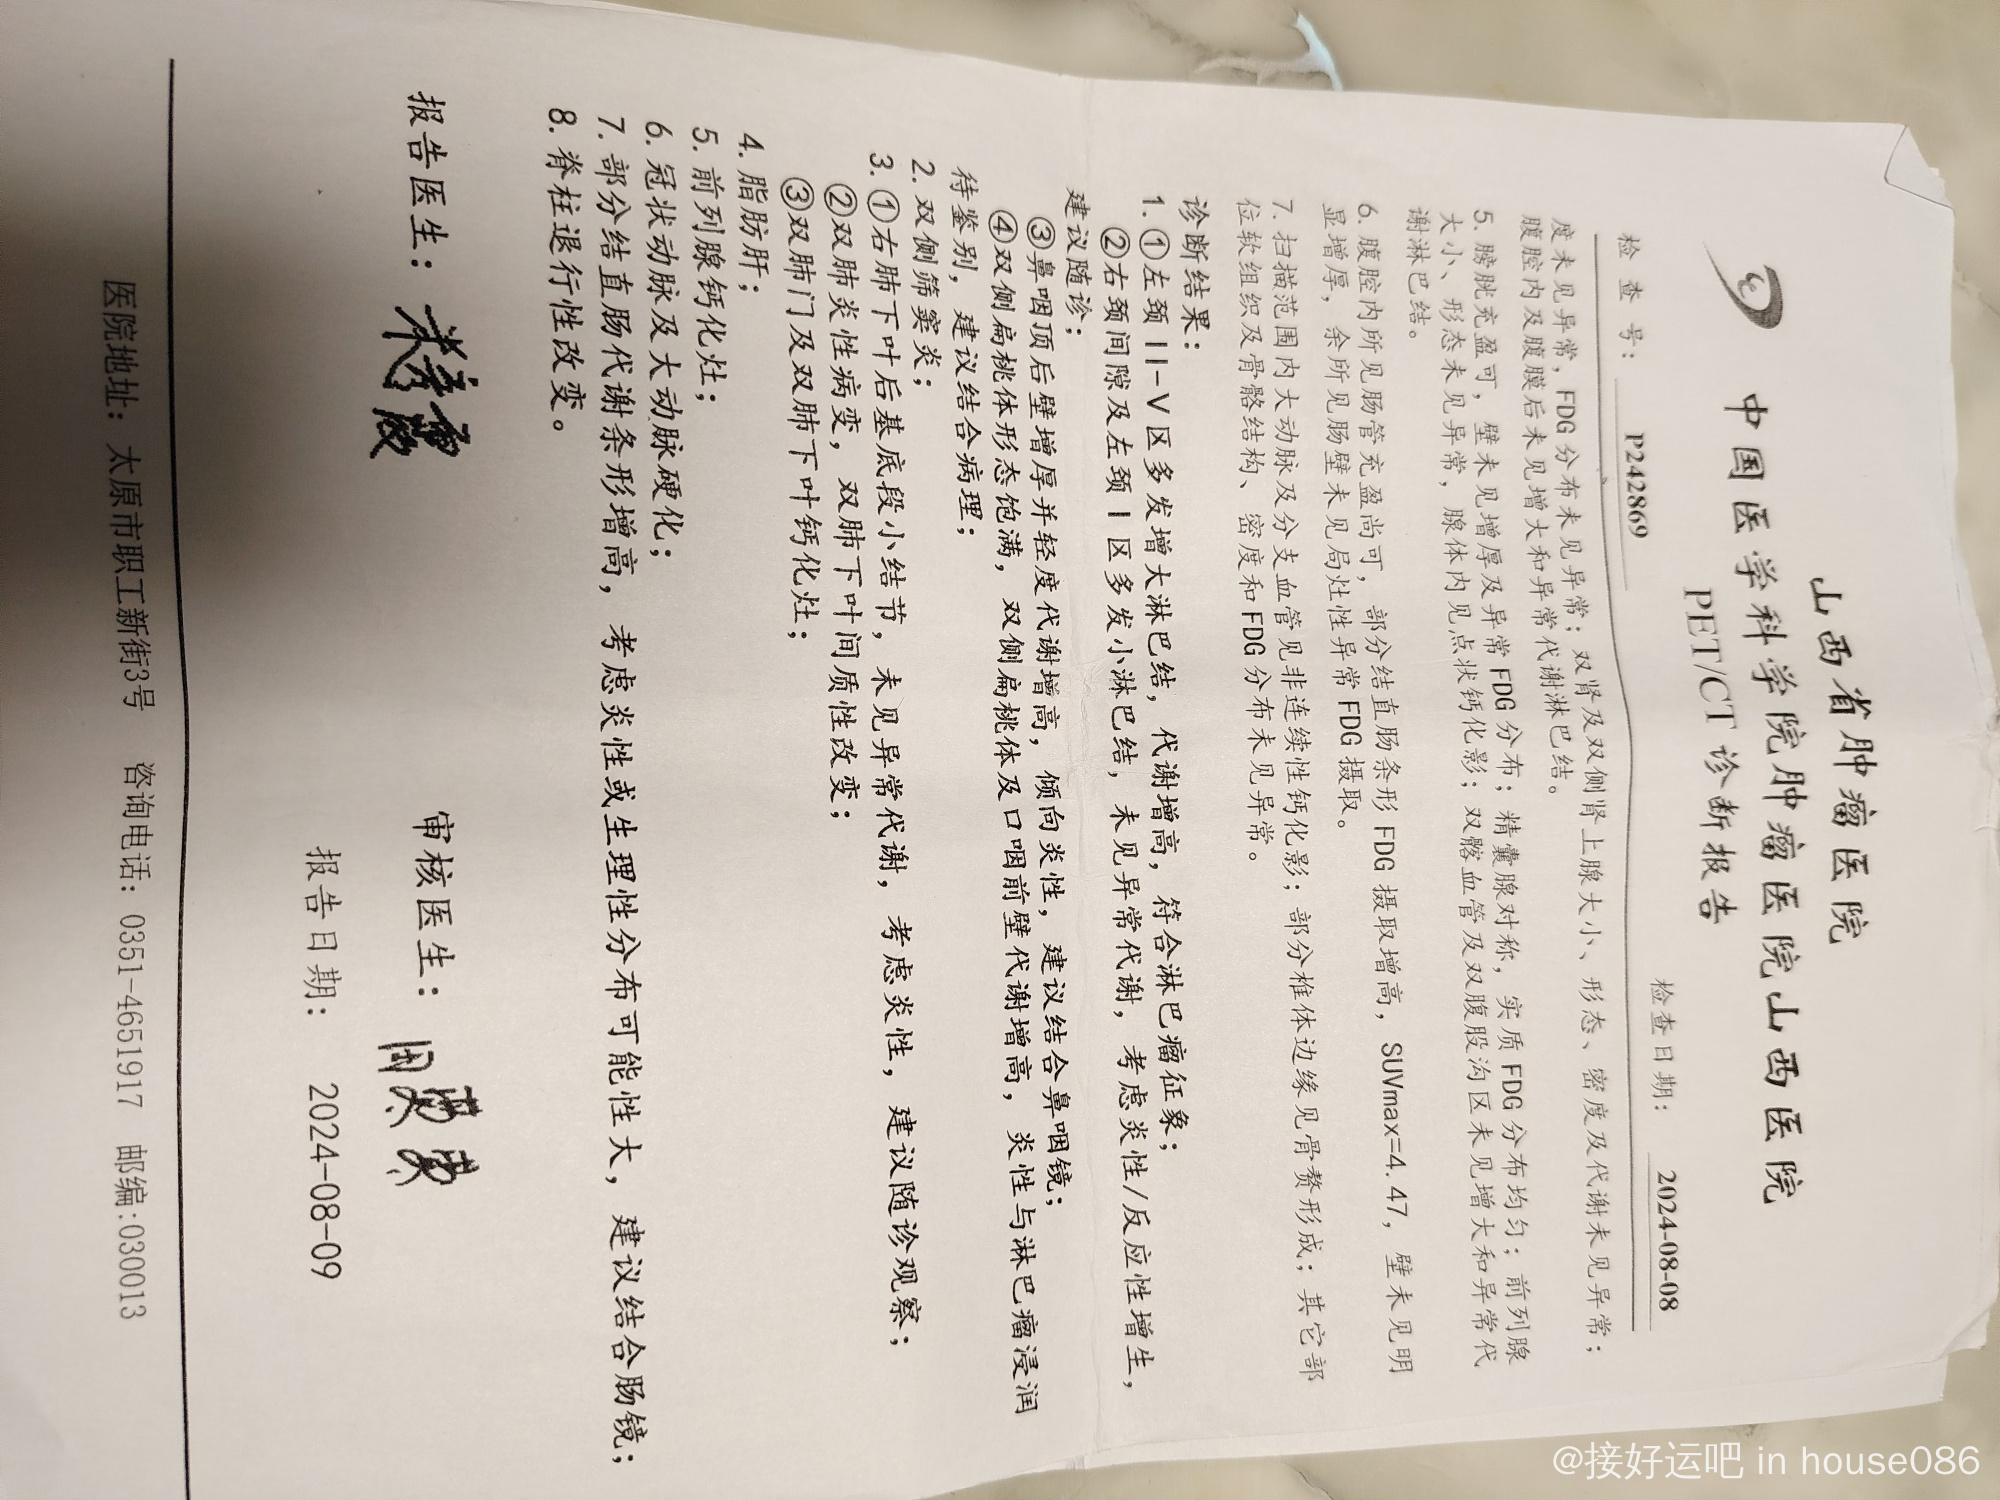 山西省肿瘤医院
中国医学科学院肿瘤医院山西医院
PET/CT 诊断报告
检 查 号： P242869 检查日期： 2024-08-08
度未见异常，FDG 分布未见异常；双肾及双侧肾上腺大小、形态、密度及代谢未见异常；
腹腔内及腹膜后未见增大和异常代谢淋巴结。
5. 膀胱充盈可，壁未见增厚及异常 FDG 分布；精囊腺对称，实质 FDG 分布均匀；前列腺
大小、形态未见异常，腺体内见点状钙化影；双髂血管及双腹股沟区未见增大和异常代
谢淋巴结。
6. 腹腔内所见肠管充盈尚可，部分结直肠条形 FDG 摄取增高，SUVmax=4.47，壁未见明
显增厚，余所见肠壁未见局灶性异常 FDG 摄取。
7. 扫描范围内大动脉及分支血管见非连续性钙化影；部分椎体边缘见骨赘形成；其它部
位软组织及骨骼结构、密度和 FDG 分布未见异常。
诊断结果：
1. ①左颈 II-V 区多发增大淋巴结，代谢增高，符合淋巴瘤征象；
②右颈间隙及左颈 I 区多发小淋巴结，未见异常代谢，考虑炎性/反应性增生，
建议随诊；
③鼻咽顶后壁增厚并轻度代谢增高，倾向炎性，建议结合鼻咽镜；
④双侧扁桃体形态饱满，双侧扁桃体及口咽前壁代谢增高，炎性与淋巴瘤浸润
待鉴别，建议结合病理；
2. 双侧筛窦炎；
3. ①右肺下叶后基底段小结节，未见异常代谢，考虑炎性，建议随诊观察；
②双肺炎性病变，双肺下叶间质性改变；
③双肺门及双肺下叶钙化灶；
4. 脂肪肝；
5. 前列腺钙化灶；
6. 冠状动脉及大动脉硬化；
7. 部分结直肠代谢条形增高，考虑炎性或生理性分布可能性大，建议结合肠镜；
8. 脊柱退行性改变。
报告医生： 审核医生：
报告日期： 2024-08-09
医院地址：太原市职工新街3号 咨询电话：0351-4651917 邮编:030013
@接好运吧 in house086